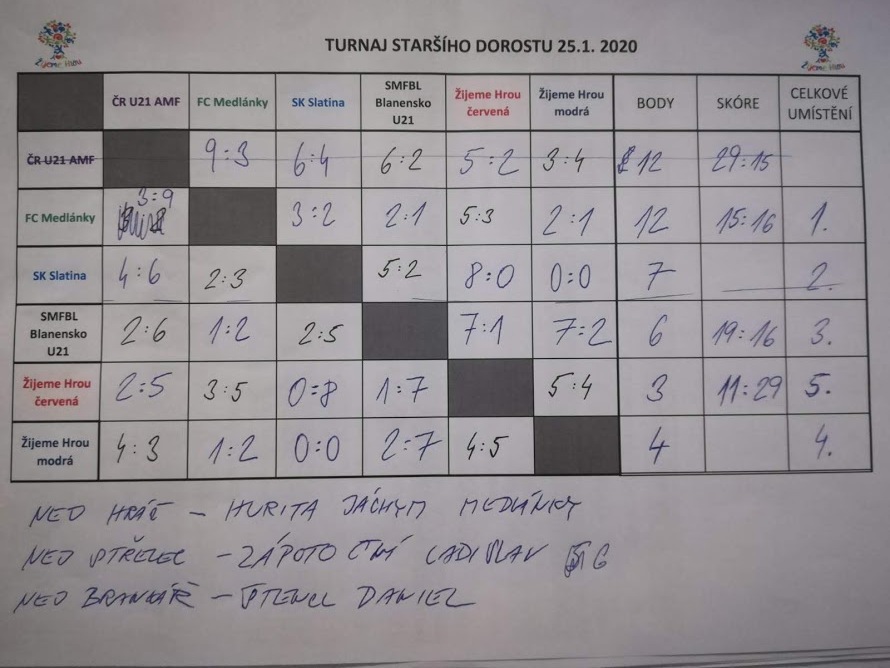 Žijeme Hrou
TURNAJ STARŠÍHO DOROSTU 25.1. 2020
Žijeme Hrou
ČR U21 AMF FC Medlánky SK Slatina SMFBL Blanensko U21 Žijeme Hrou červená Žijeme Hrou modrá BODY SKÓRE CELKOVÉ UMÍSTĚNÍ
ČR U21 AMF 9:3 6:4 6:2 5:2 3:4 12 29:15
FC Medlánky 3:9 3:2 2:1 5:3 2:1 12 15:16 1.
SK Slatina 4:6 2:3 5:2 8:0 0:0 7 2.
SMFBL Blanensko U21 2:6 1:2 2:5 7:1 7:2 6 19:16 3.
Žijeme Hrou červená 2:5 3:5 0:8 1:7 5:4 3 11:29 5.
Žijeme Hrou modrá 4:3 1:2 0:0 2:7 4:5 4 4.
NEJ HRÁČ - HURITA JÁCHYM MEDLÁNKY
NEJ STŘELEC - ZÁPOTOČNÝ LADISLAV 6
NEJ BRANKÁŘ - DANIEL